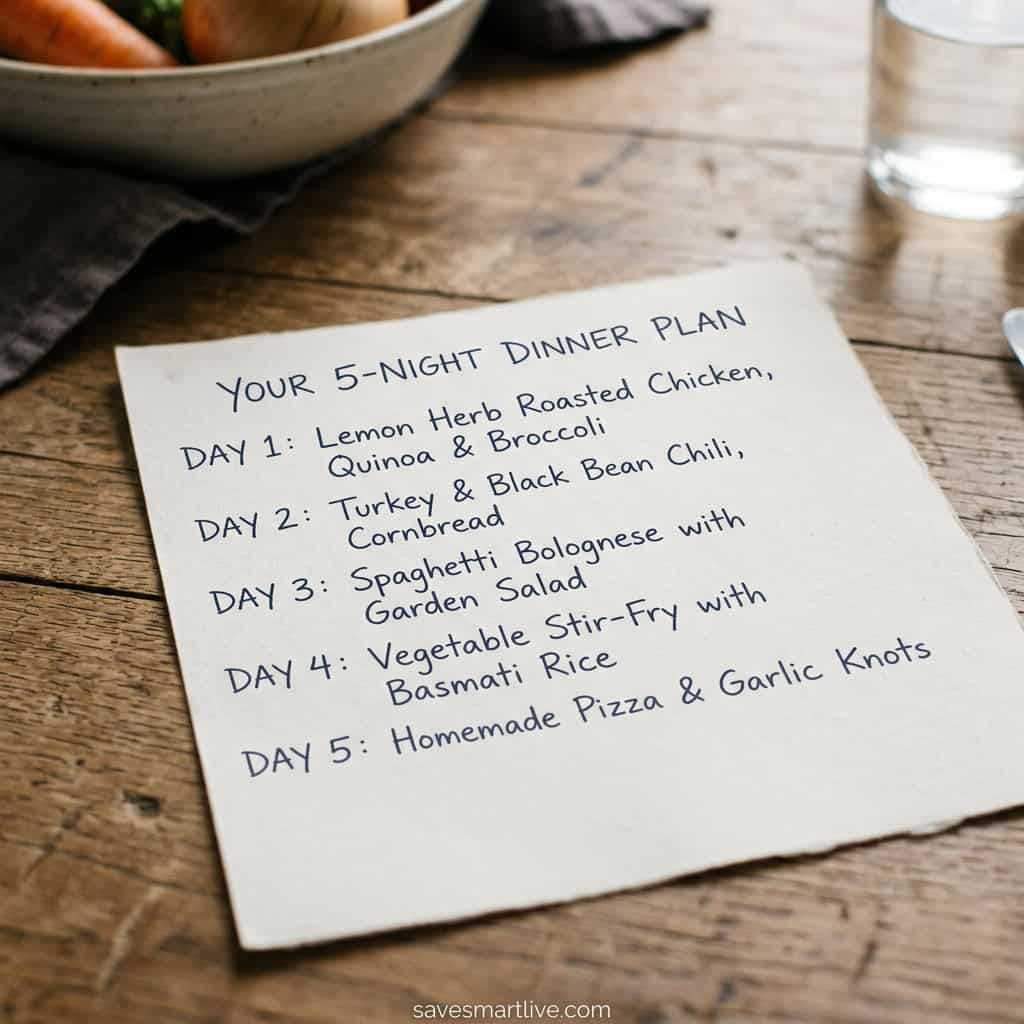 YOUR 5-NIGHT DINNER PLAN
DAY 1: Lemon Herb Roasted Chicken,
Quinoa & Broccoli
DAY 2: Turkey & Black Bean Chili,
Cornbread
DAY 3: Spaghetti Bolognese with
Garden Salad
DAY 4: Vegetable Stir-Fry with
Basmati Rice
DAY 5: Homemade Pizza & Garlic Knots
savesmartlive.com